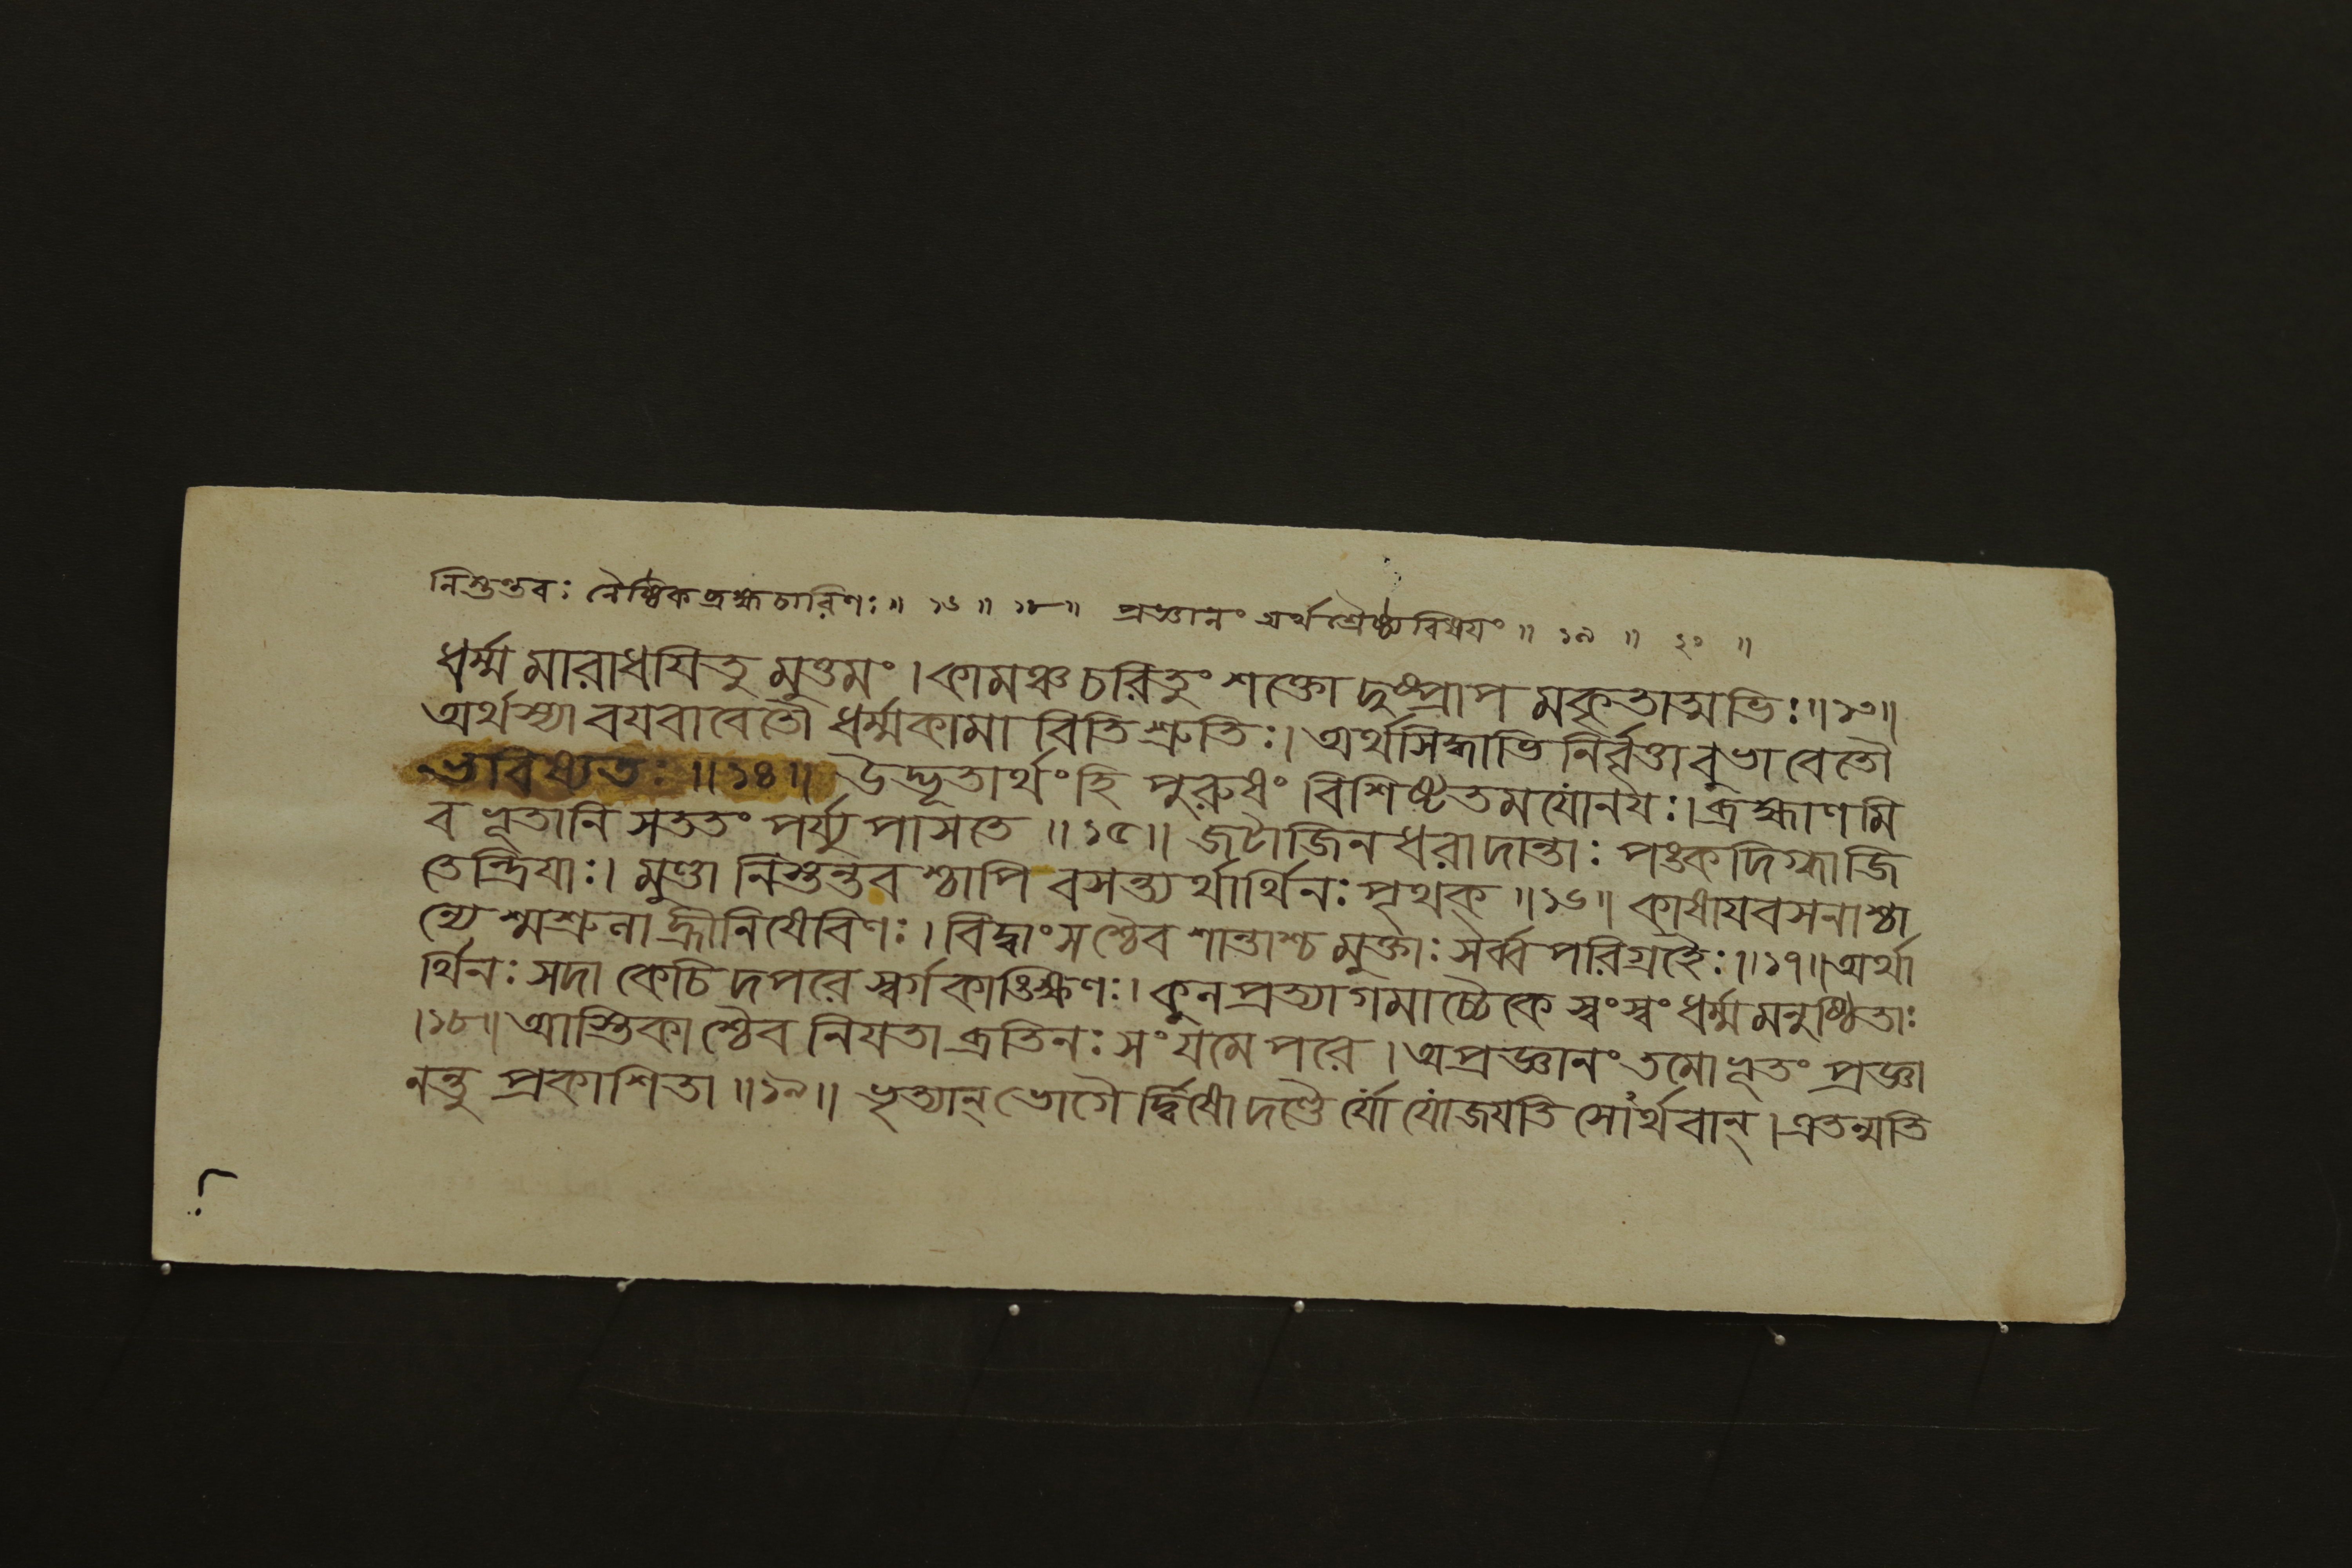 নিস্তন্তবঃ নৈষ্ঠিকব্রহ্মচারিণঃ॥ ১৬ ॥ ১৮॥ প্রজ্ঞানং অর্থশ্রৈষ্ঠ্যবিষয়ং॥ ১৯ ॥ ২০ ॥
ধর্ম্ম মারাধযিতু মুত্তমং। কামঞ্চ চরিতুং শক্তো দুষ্প্রাপ মকৃতাত্মভিঃ॥১৩॥
অর্থস্যা বযবাবেতৌ ধর্ম্মকামা বিতি শ্রুতিঃ। অর্থসিদ্ধ্যাভি নির্বৃত্তাবুভাবেতৌ
ভবিষ্যতঃ ॥১৪॥ উদ্ভূতার্থংহি পুরুষং বিশিষ্টতমযোনযঃ। ব্রহ্মাণমি
ব ভূতানি সততং পর্য্যুপাসতে ॥১৫॥ জটাজিনধরাদান্তাঃ পঙ্কদিগ্ধাজি
তেন্দ্রিযাঃ। মুণ্ডা নিস্তন্তবশ্চাপি বসন্ত্যর্থার্থিনঃ পৃথক্ ॥১৬॥ কাষাযবসনাশ্চা
ন্যে শ্মশ্রুলা হ্রীনিষেবিণঃ। বিদ্বাংসশ্চৈব শান্তাশ্চ মুক্তাঃ সর্ব্বপরিগ্রহৈঃ॥১৭॥অর্থা
র্থিনঃ সদা কেচি দপরে স্বর্গকাঙ্ক্ষিণঃ। কুলপ্রত্যাগমাশ্চৈকে স্বংস্বং ধর্ম্মমনুষ্ঠিতাঃ
।১৮॥ আস্তিকাশ্চৈব নিযতা ব্রতিনঃ সংযমে পরে। অপ্রজ্ঞানং তমোভূতং প্রজ্ঞা
নন্তু প্রকাশিতা ॥১৯॥ ভৃত্যান্ ভোগৈ র্দ্বিষো দণ্ডৈ র্যো যোজযতি সোর্থবান্। এতন্মতি